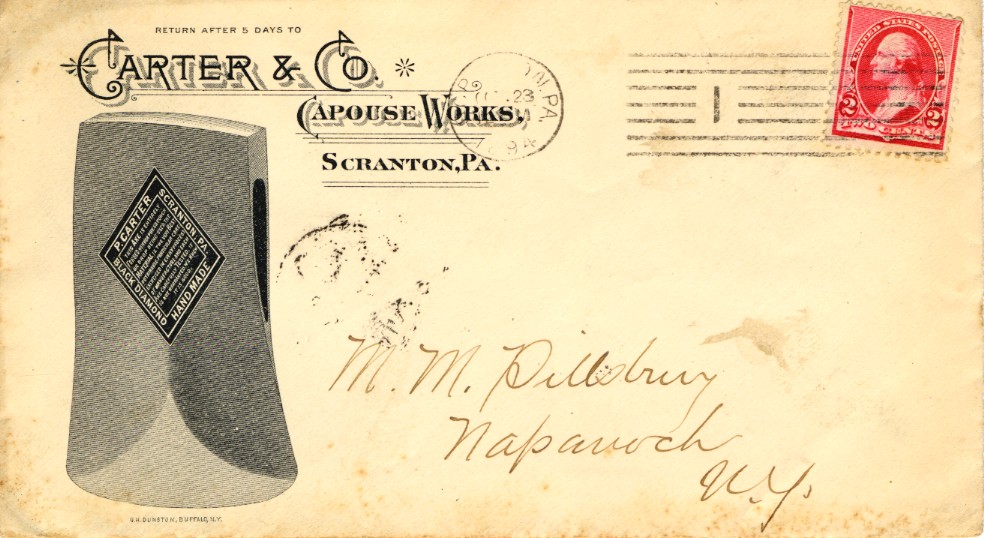 RETURN AFTER 5 DAYS TO
CARTER & CO.
CAPOUSE WORKS,
SCRANTON, PA.
23
1894
UNITED STATES POSTAGE
2 2
TWO CENTS
P. CARTER
SCRANTON, PA.
BLACK DIAMOND
HAND MADE
M. M. Pillsbury
Napanoch
N.Y.
DUNSTON, BUFFALO, N.Y.